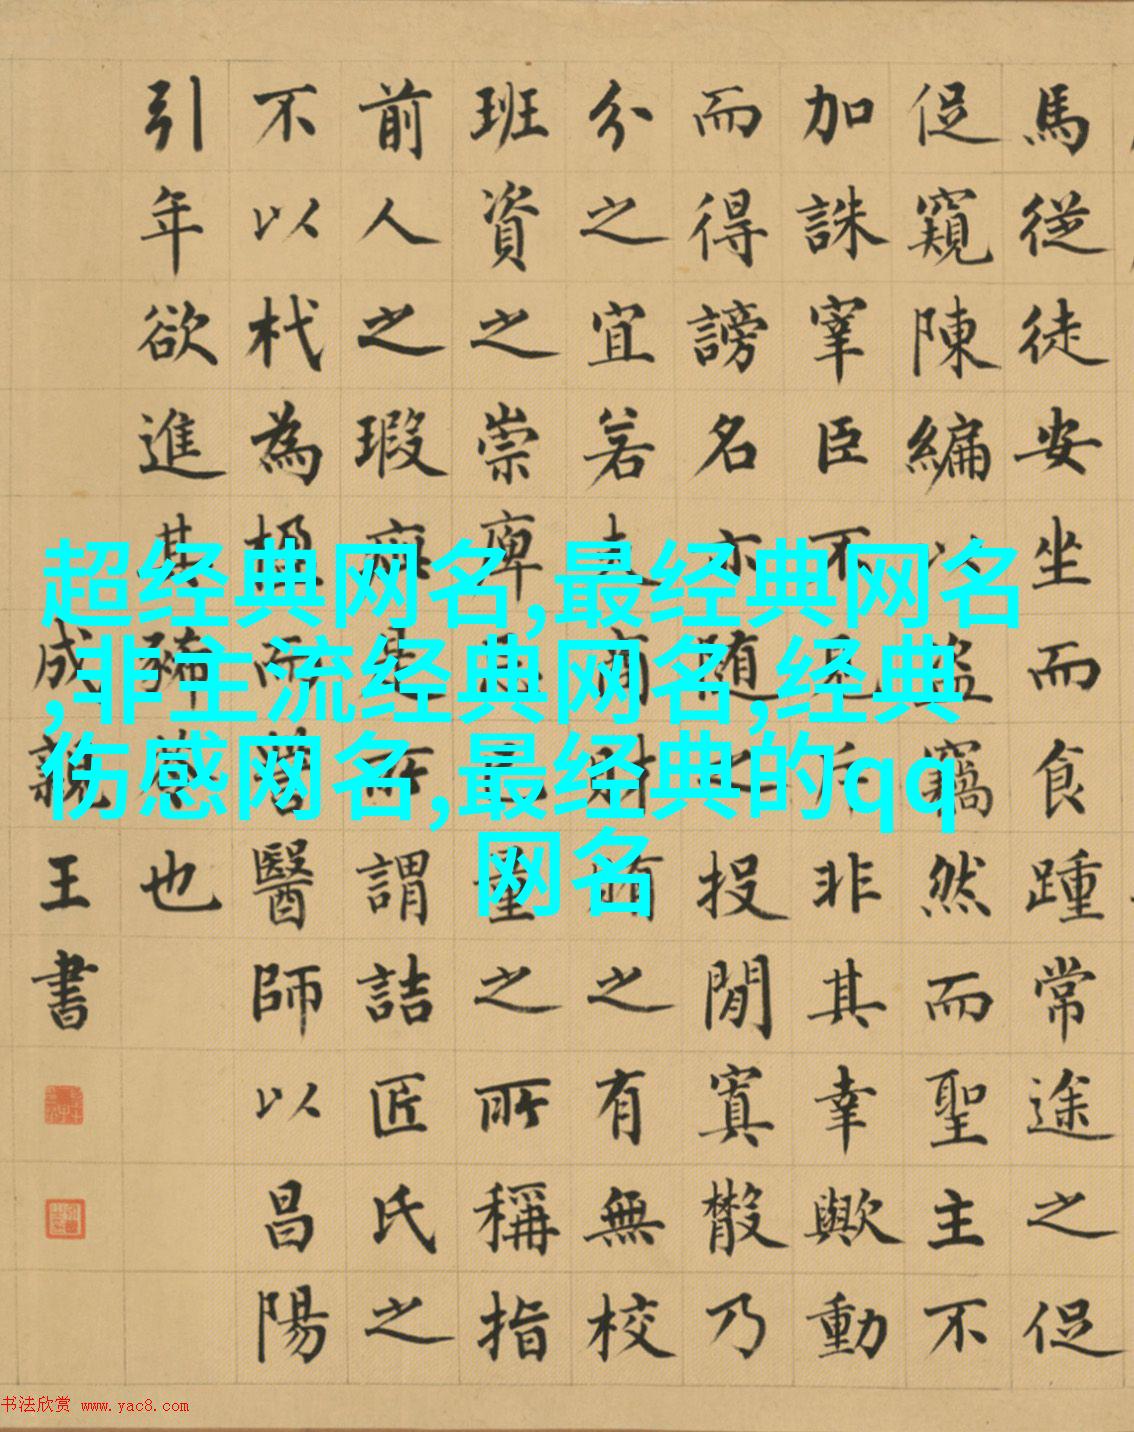 馬從徒安坐而食踵常途之促
促窺陳編以盜竊然而聖主不
加誅宰臣不見斥非其幸歟動
而得謗名亦随之投閒寘散乃
分之宜若夫商財賄之有無校
班資之崇庳忘己量之所稱指
前人之瑕疵是所謂詰匠氏之
不以杙為楹而訾醫師以昌陽
引年欲進其豨苓也
成親王書
超经典网名,最经典网名
,非主流经典网名,经典
伤感网名,最经典的qq
网名
书法欣赏 www.yac8.com